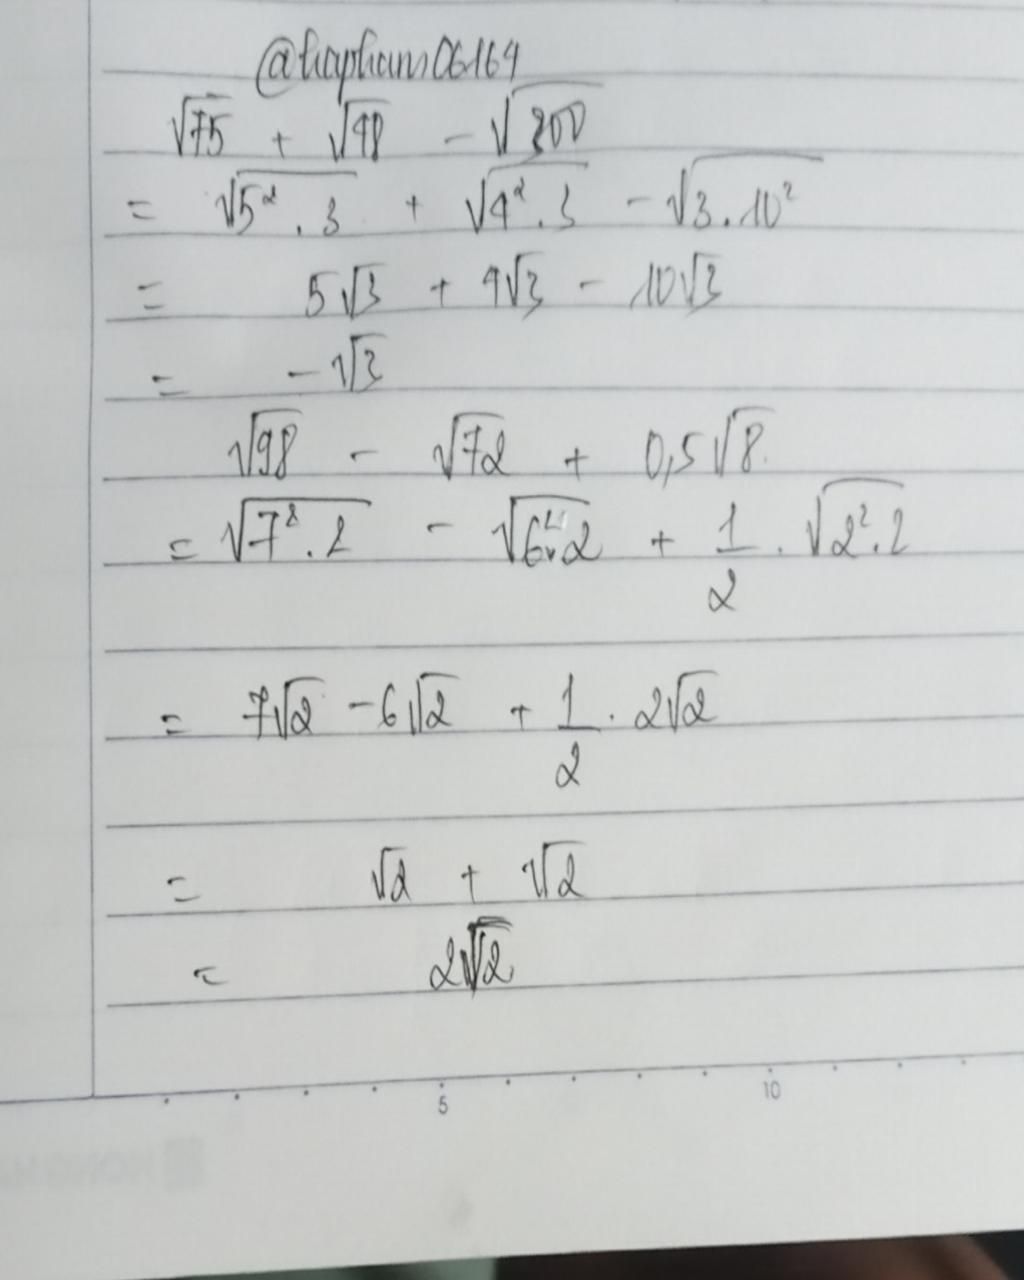 @hapham06164
√75 + √48 - √300
= √5² . 3 + √4² . 3 - √3 . 10²
= 5√3 + 4√3 - 10√3
= -√3
√98 - √72 + 0,5√8
= √7² . 2 - √6² . 2 + 1/2 . √2² . 2
= 7√2 - 6√2 + 1/2 . 2√2
= √2 + √2
= 2√2
5 10